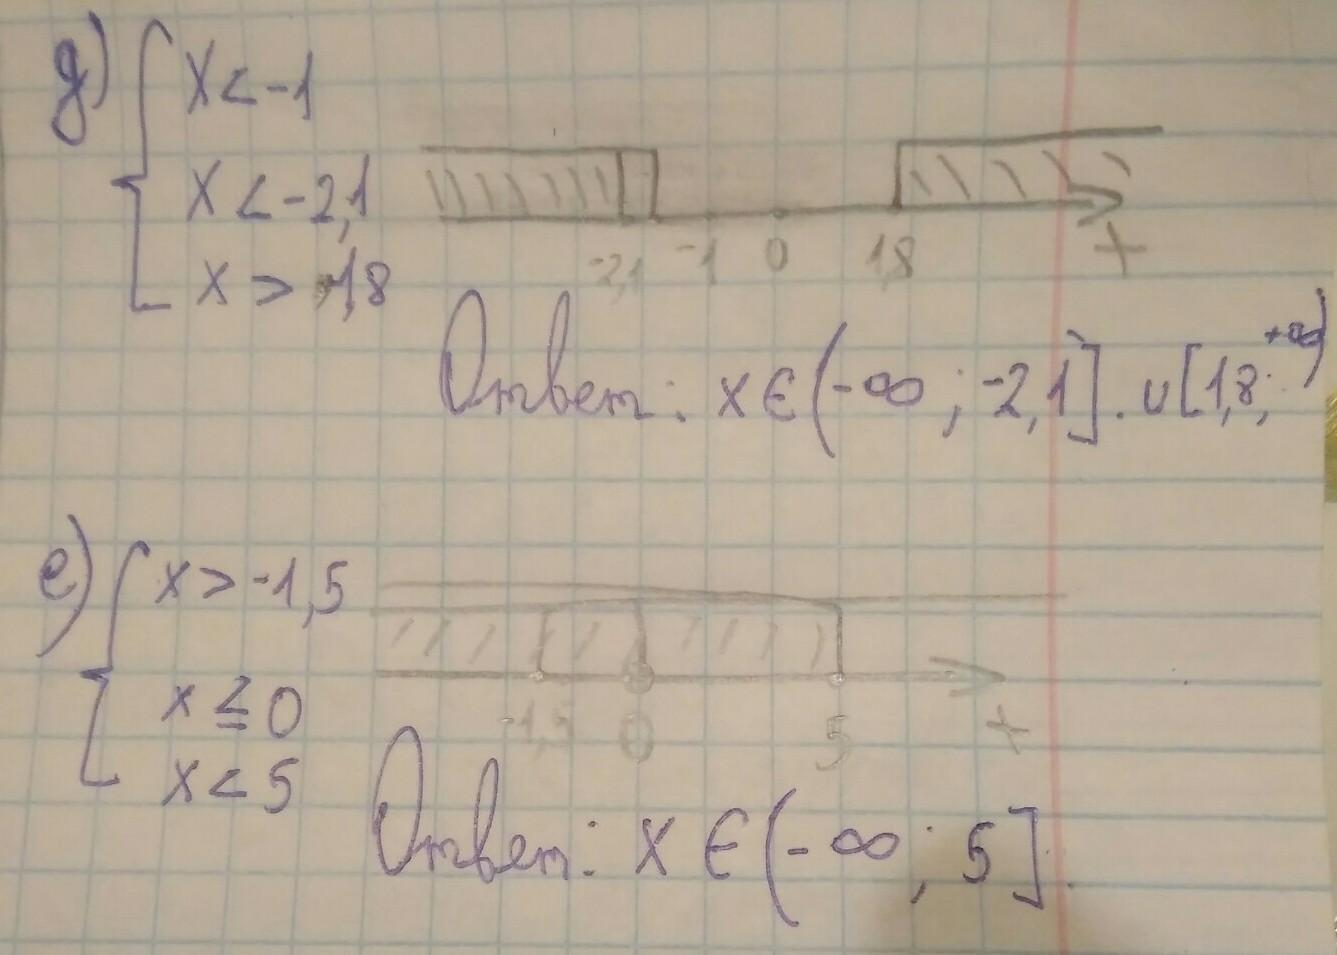 д) { x < -1
x < -2,1
x > 1,8
-2,1 -1 0 1,8 +
Ответ: x ∈ (-∞ ; -2,1]. ∪ [1,8; +∞)
е) { x > -1,5
x ≤ 0
x < 5
-1,5 0 5 +
Ответ: x ∈ (-∞ ; 5].